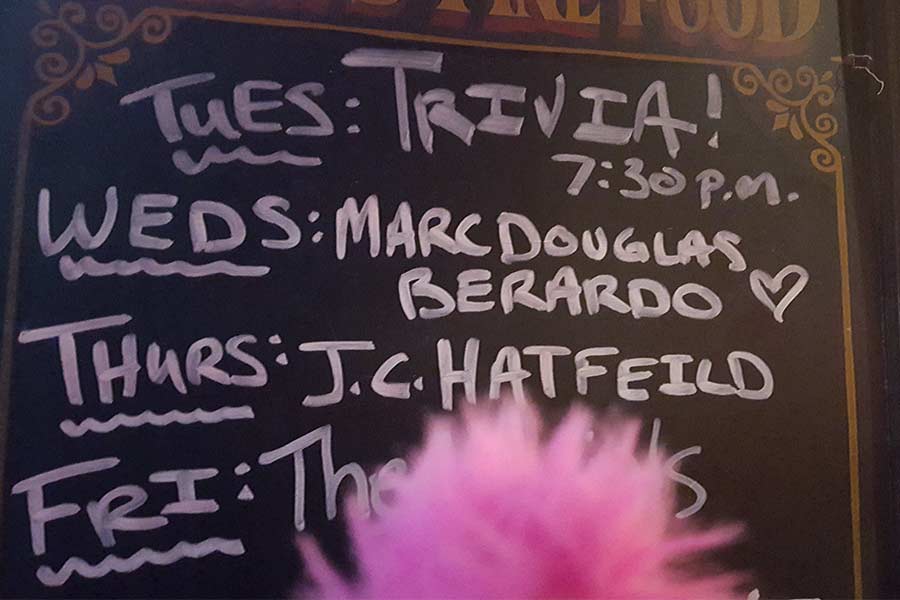 FINE FOOD
TUES: TRIVIA!
7:30 p.m.
WEDS: MARC DOUGLAS
BERARDO
THURS: J.C. HATFEILD
FRI: The